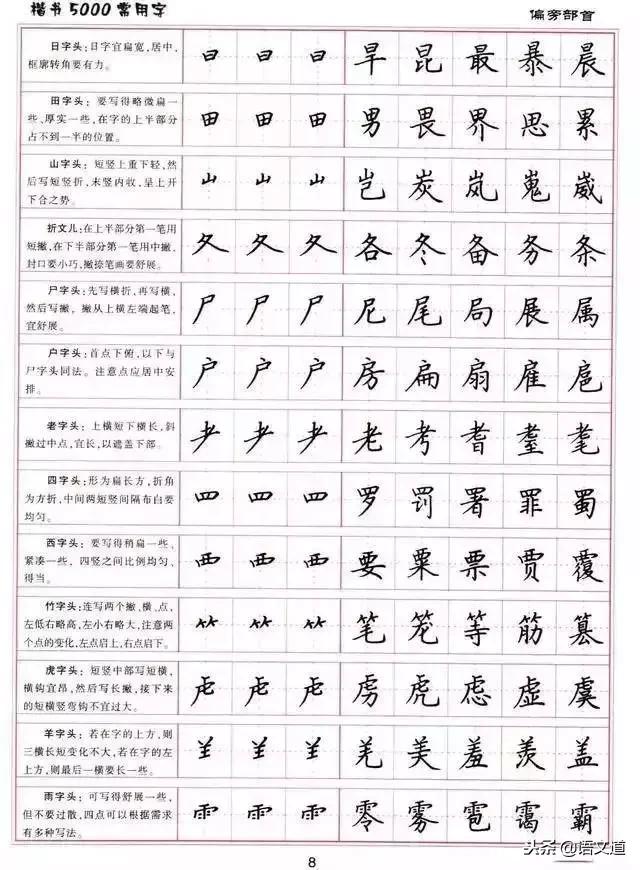 楷书5000常用字
偏旁部首
日字头：日字宜扁宽，居中，
框廓转角要有力。
日 日 日 旱 昆 最 暴 晨
田字头：要写得略微扁一
些，厚实一些，在字的上半部分
占不到一半的位置。
田 田 田 男 畏 界 思 累
山字头：短竖上重下轻，然
后写短竖折，末竖内收，呈上开
下合之势。
山 山 山 岂 炭 岚 嵬 崴
折文儿：在上半部分第一笔用
短撇，在下半部分第一笔用中撇，
封口要小巧，撇捺笔画要舒展。
夂 夂 夂 各 冬 备 务 条
尸字头：先写横折，再写横，
然后写撇，撇从上横左端起笔，
宜舒展。
尸 尸 尸 尼 尾 局 展 属
户字头：首点下俯，以下与
尸字头同法。注意点应居中安
排。
户 户 户 房 扁 扇 雇 扈
老字头：上横短下横长，斜
撇过中点，宜长，以遮盖下部。
耂 耂 耂 老 考 耆 耋 耄
四字头：形为扁长方，折角
为方折，中间两短竖间隔布白要
均匀。
罒 罒 罒 罗 罚 署 罪 蜀
西字头：要写得稍扁一些，
紧凑一些，四竖之间比例均匀、
得当。
覀 覀 覀 要 粟 票 贾 覆
竹字头：连写两个撇、横、点，
左低右略高，左小右略大，注意两
个点的变化，左点启上，右点启下。
⺮ ⺮ ⺮ 笔 笼 等 筋 篡
虎字头：短竖中部写短横，
横钩宜昂，然后写长撇，接下来
的短横竖弯钩不宜过大。
虍 虍 虍 虏 虎 虑 虚 虞
羊字头：若在字的上方，则
三横长短变化不大，若在字的左
上方，则最后一横要长一些。
𦍌 𦍌 𦍌 羌 美 羞 羡 盖
雨字头：可写得舒展一些，
但不要过散，四点可以根据需求
有多种写法。
⻗ ⻗ ⻗ 零 雾 雹 霭 霸
8
头条@语文道